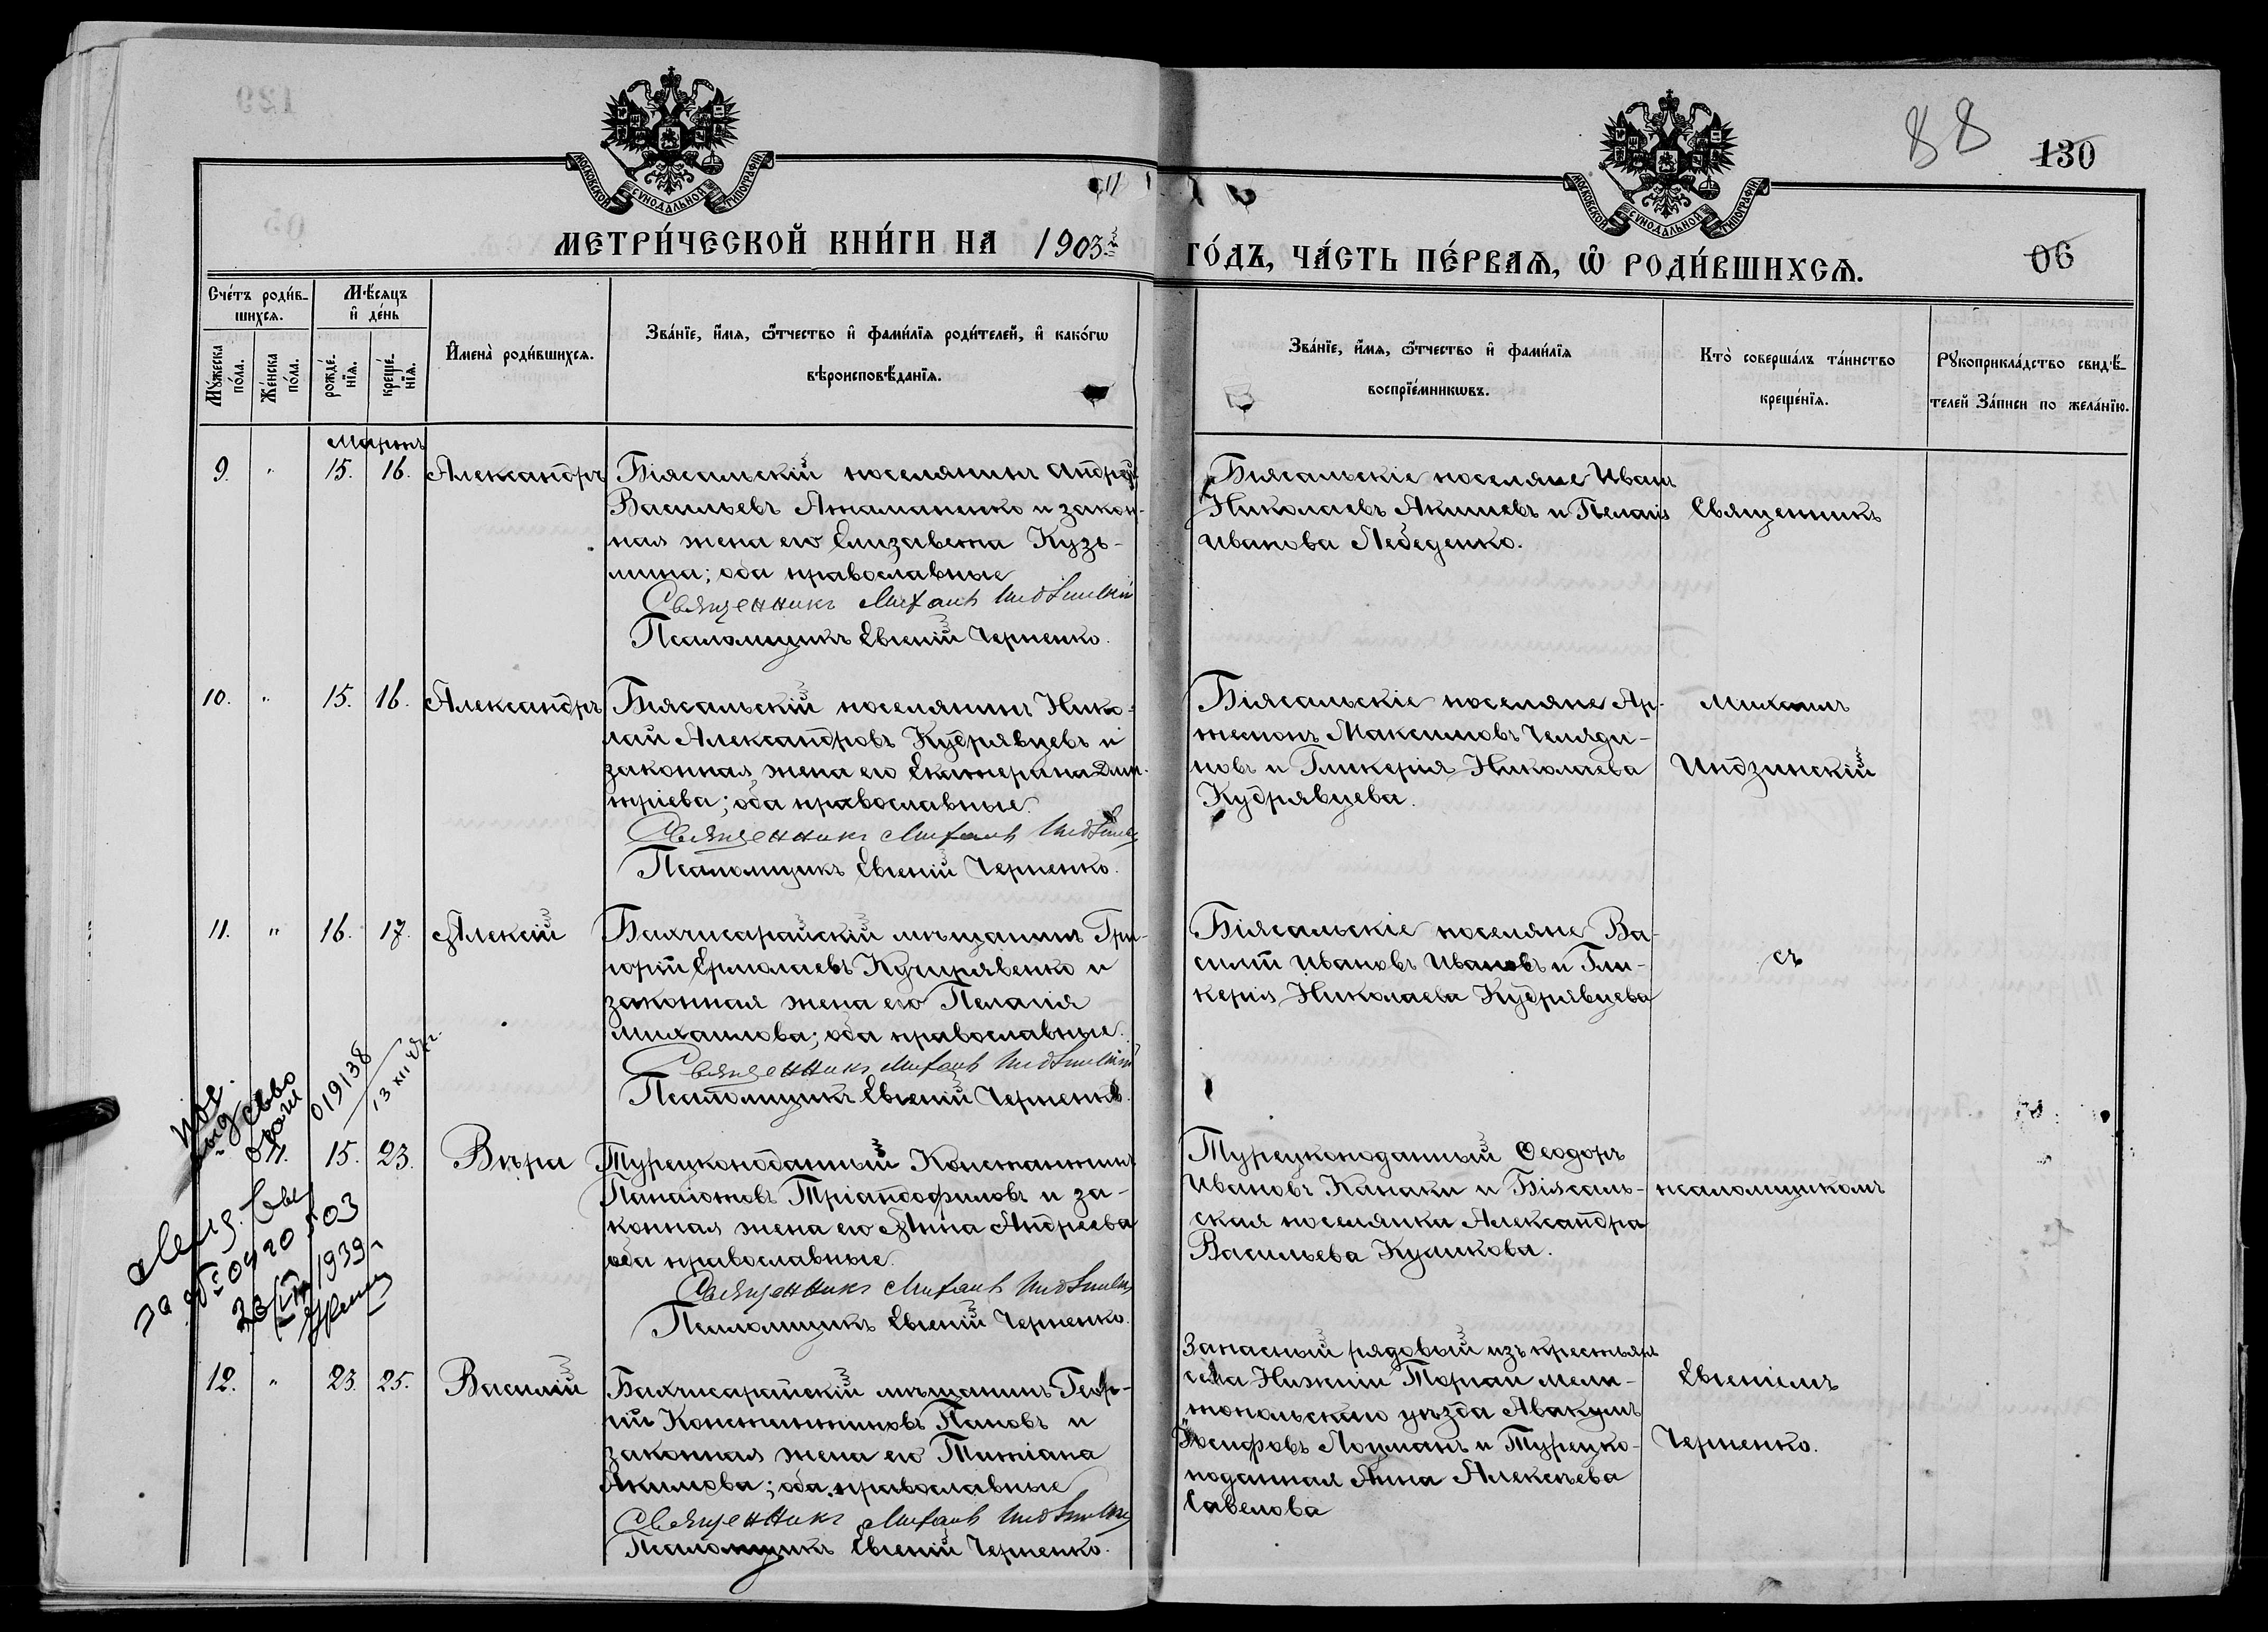 88
130
06
МОСКОВСКОЙ СѴНОДАЛЬНОЙ ТИПОГРАФІИ
МОСКОВСКОЙ СѴНОДАЛЬНОЙ ТИПОГРАФІИ
МЕТРИ́ЧЕСКОЙ КНИ́ГИ НА 1903й ГО́ДЪ, ЧА́СТЬ ПЕ́РВАѦ, Ѡ РОДИ́ВШИХСѦ.
Сче́тъ роди́в-
шихсѧ.
Мꙋ́жеска
по́ла.
Же́нска
по́ла.
Мѣ́сяцъ
и҆ де́нь
рожде́-
нїѧ.
креще́-
нїѧ.
И҆мена̀ роди́вшихсѧ.
Зва́нїе, и҆́мѧ, ѻ҆́тчество и҆ фами́лїѧ роди́телей, и҆ како́гѡ
вѣроисповѣ́данїѧ.
Зва́нїе, и҆́мѧ, ѻ҆́тчество и҆ фами́лїѧ
воспрїе́мникѡвъ.
Кто̀ соверша́лъ та́инство
креще́нїѧ.
Рꙋкоприкла́дство свидѣ́-
телей За́писи по жела́нїю.
Мартъ
9. " 15. 16. Александръ
Біясальскій поселянинъ Андрей
Васильевъ Атаманенко и закон-
ная жена его Елизавета Кузь-
мина; оба православные
Священникъ Михаилъ Индзинскій
Псаломщикъ Евгеній Черненко.
Біясальскіе поселяне Иванъ
Николаевъ Акишевъ и Пелагія
Иванова Лебеденко.
Священникъ
10. " 15. 16. Александръ
Біясальскій поселянинъ Нико-
лай Александровъ Кудрявцевъ и
законная жена его Екатерина Дми-
тріева; оба православные.
Священникъ Михаилъ Индзинскій
Псаломщикъ Евгеній Черненко.
Біясальскіе поселяне Ар-
темонъ Максимовъ Челяди-
новъ и Гликерія Николаева
Кудрявцева.
Михаилъ
Индзинскій
11. " 16. 17. Алексій
Бахчисарайскій мѣщанинъ Гри-
горій Ермолаевъ Кучерявенко и
законная жена его Пелагія
Михаилова; оба православные.
Священникъ Михаилъ Индзинскій
Псаломщикъ Евгеній Черненко.
Біясальскіе поселяне Ва-
силій Ивановъ Ивановъ и Гли-
керія Николаева Кудрявцева
съ
019138
13 XII
15. 23. Вѣра
Турецкоподанный Константинъ
Панаіотовъ Тріандофиловъ и за-
конная жена его Анна Андреева
оба православные.
Священникъ Михаилъ Индзинскій
Псаломщикъ Евгеній Черненко.
Турецкоподанный Ѳеодоръ
Ивановъ Канаки и Біясаль-
ская поселянка Александра
Васильева Куликова.
псаломщикомъ
за № 0920503
1939
12. " 23. 25. Василій
Бахчисарайскій мѣщанинъ Геор-
гій Константиновъ Пановъ и
законная жена его Татіана
Акимова; оба православные
Священникъ Михаилъ Индзинскій
Псаломщикъ Евгеній Черненко.
Запасный рядовый изъ крестьянъ
села Нижній Торгаи Мели-
топольскаго уѣзда Авакумъ
Іосифовъ Лоцманъ и Турецко-
поданная Анна Алексѣева
Савелова
Евгеніемъ
Черненко.